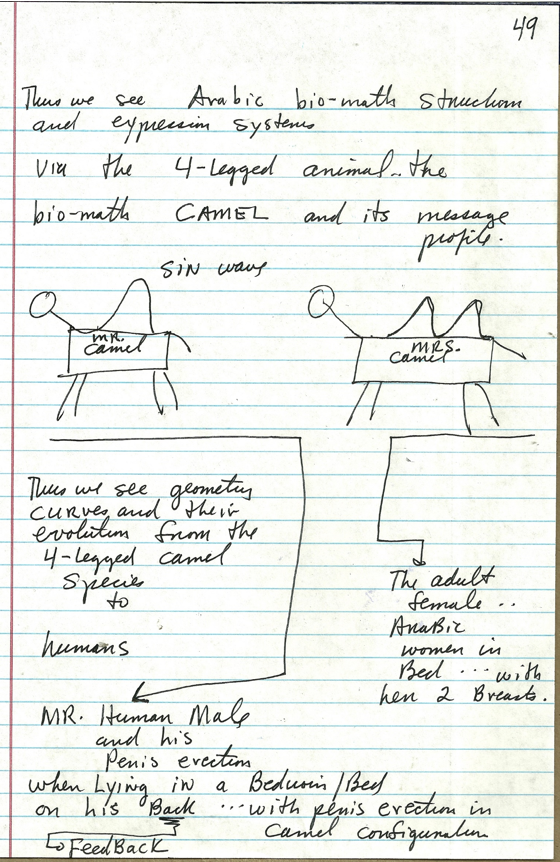 49
Thus we see Arabic bio-math structure
and expression systems
via the 4-legged animal..the
bio-math CAMEL and its message
profile.
SIN wave
MR.
Camel
MRS.
Camel
Thus we see geometry
curves and their
evolution from the
4-legged camel
species
to
humans
The adult
female ..
Arabic
women in
Bed ... with
her 2 Breasts.
MR. Human Male
and his
Penis erection
when Lying in a Bedouin/Bed
on his Back ...with penis erection in
camel configuration
FeedBack